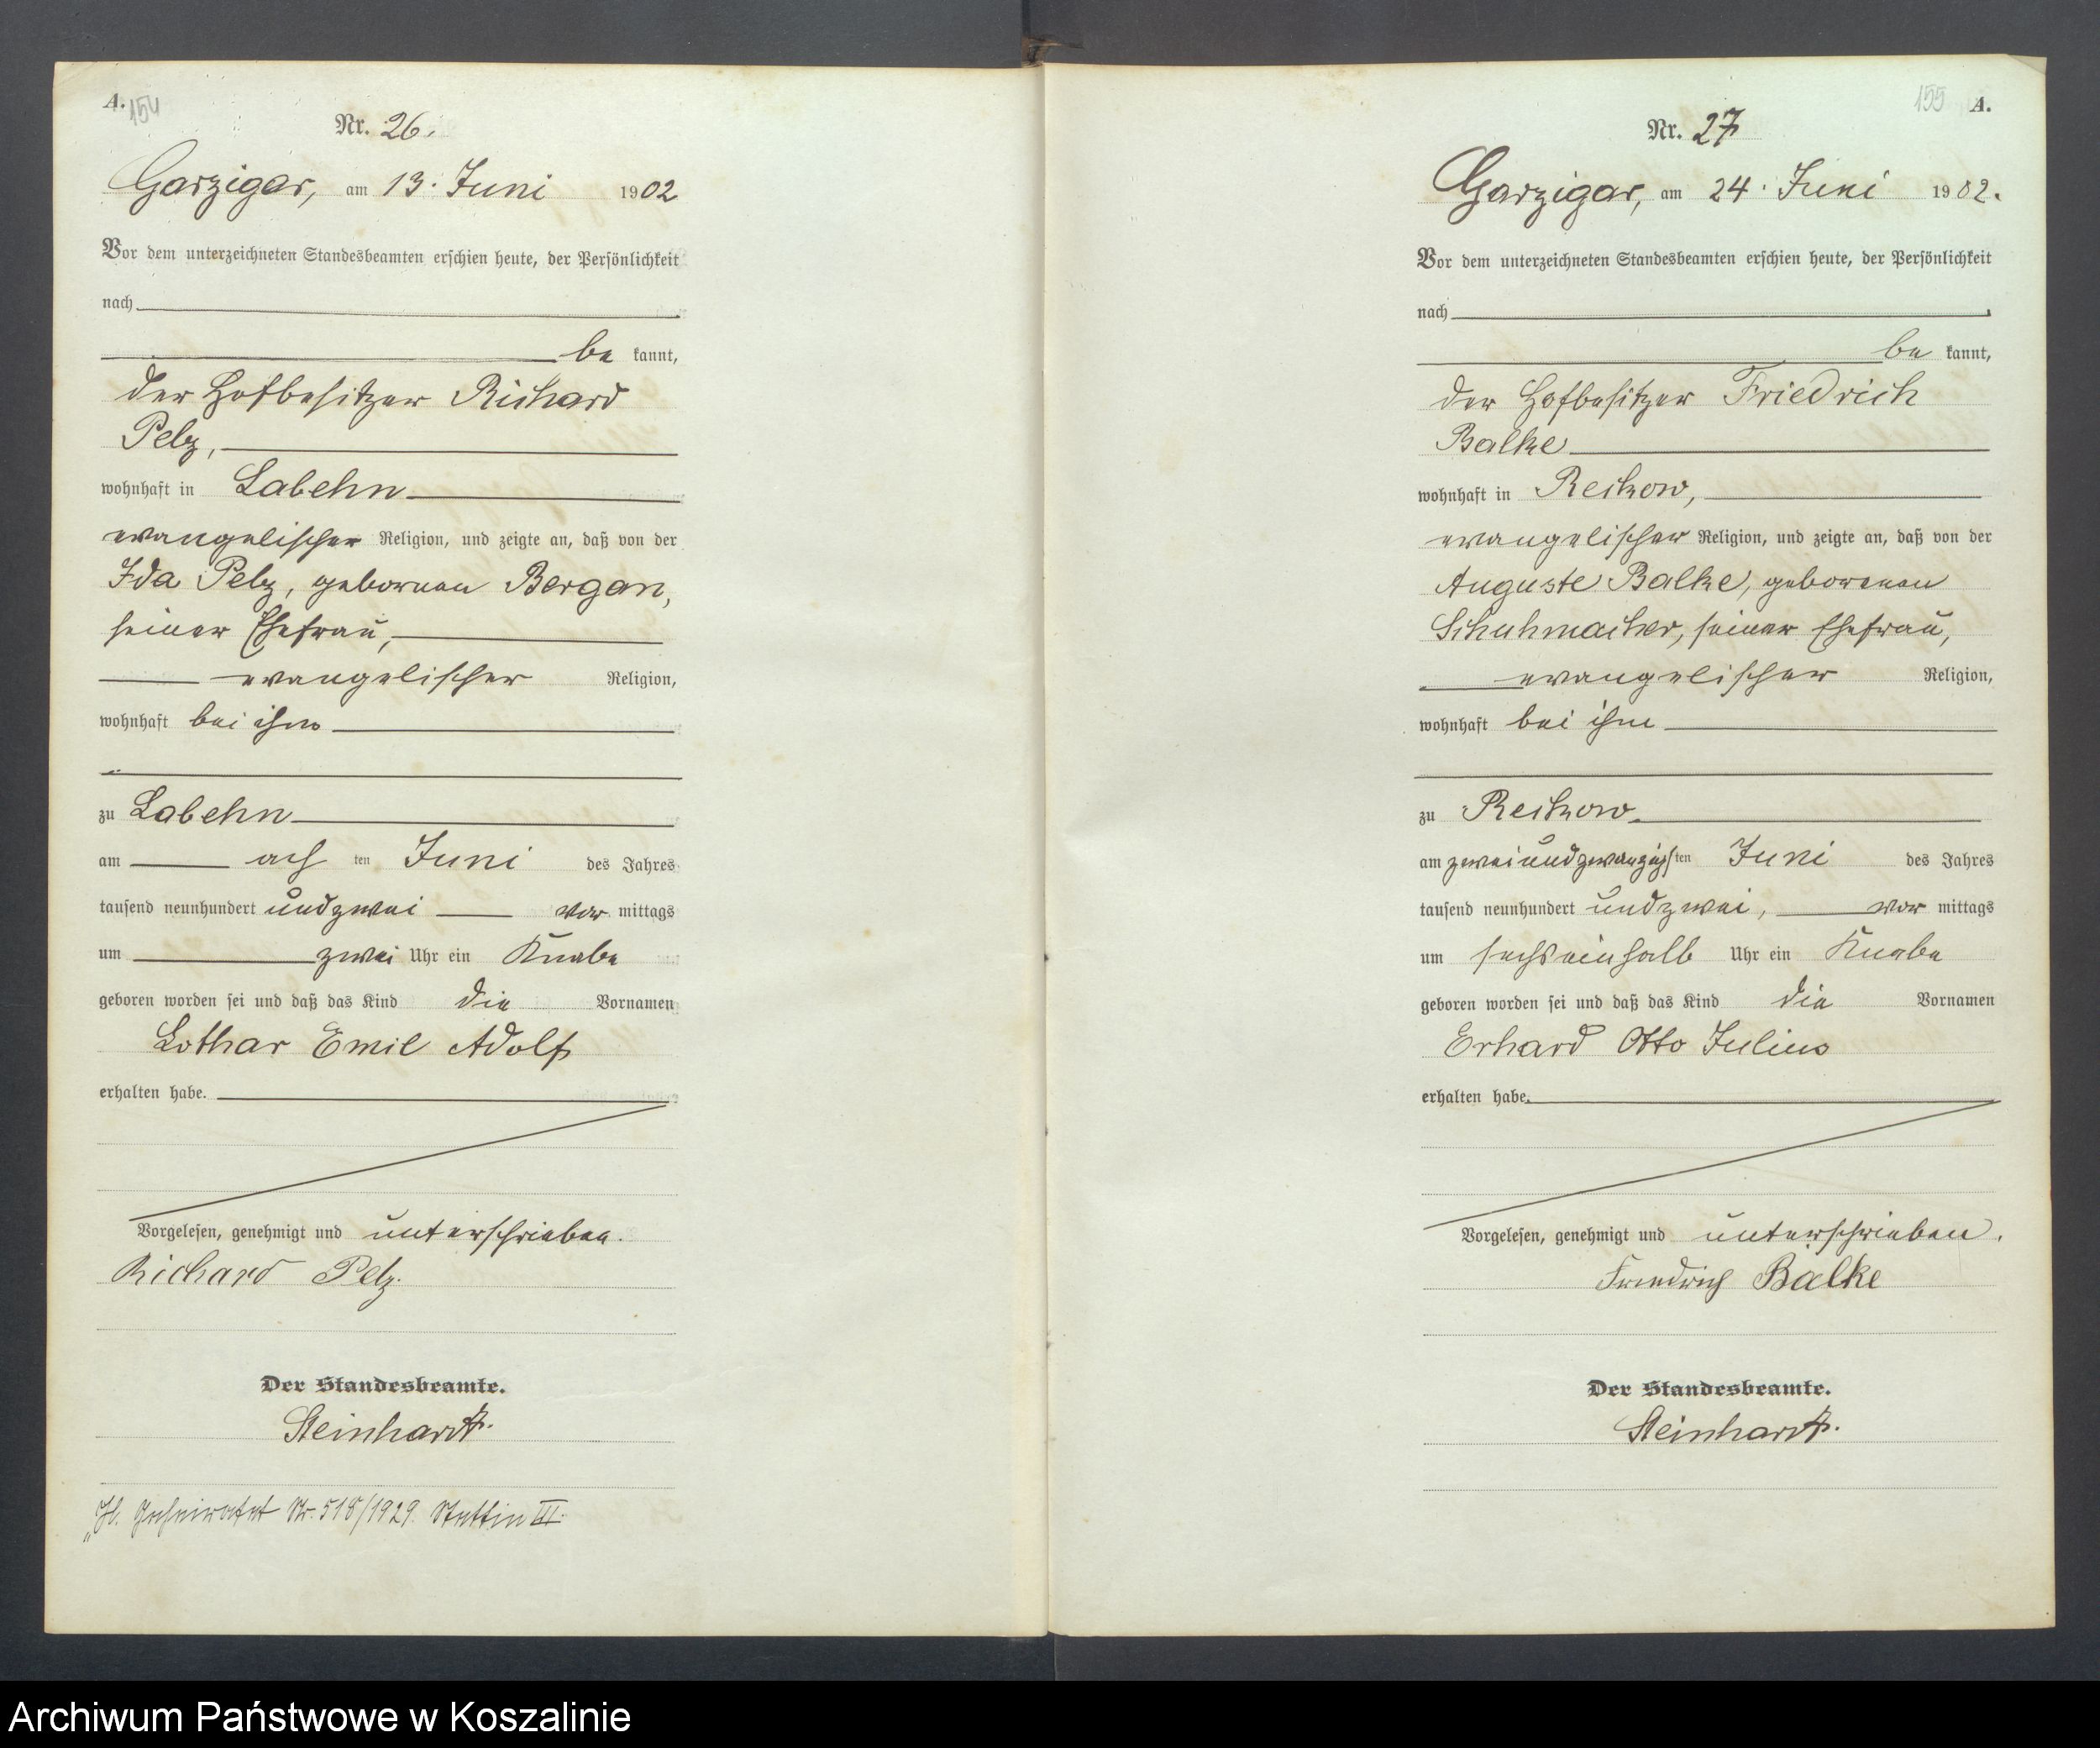 A.
154
Nr. 26.
Garzigar, am 13. Juni 1902
Vor dem unterzeichneten Standesbeamten erschien heute, der Persönlichkeit
nach
be kannt,
der Hofbesitzer Richard
Pelz,
wohnhaft in Labehn
evangelischer Religion, und zeigte an, daß von der
Ida Pelz, gebornen Bergan,
seiner Ehefrau,
evangelischer Religion,
wohnhaft bei ihm
zu Labehn
am ach ten Juni des Jahres
tausend neunhundert und zwei vor mittags
um zwei Uhr ein Knabe
geboren worden sei und daß das Kind die Vornamen
Lothar Emil Adolf
erhalten habe.
Vorgelesen, genehmigt und unterschrieben.
Richard Pelz.
Der Standesbeamte.
Steinhardt.
Nr. 518/1929. Stettin III.
155 A.
Nr. 27
Garzigar, am 24. Juni 1902.
Vor dem unterzeichneten Standesbeamten erschien heute, der Persönlichkeit
nach
be kannt,
der Hofbesitzer Friedrich
Balke
wohnhaft in Reckow,
evangelischer Religion, und zeigte an, daß von der
Auguste Balke, geborenen
Schuhmacher, seiner Ehefrau,
evangelischer Religion,
wohnhaft bei ihm
zu Reckow
am zweiundzwanzigsten Juni des Jahres
tausend neunhundert und zwei, vor mittags
um sechseinhalb Uhr ein Knabe
geboren worden sei und daß das Kind die Vornamen
Erhard Otto Julius
erhalten habe.
Vorgelesen, genehmigt und unterschrieben.
Friedrich Balke
Der Standesbeamte.
Steinhardt.
Archiwum Państwowe w Koszalinie